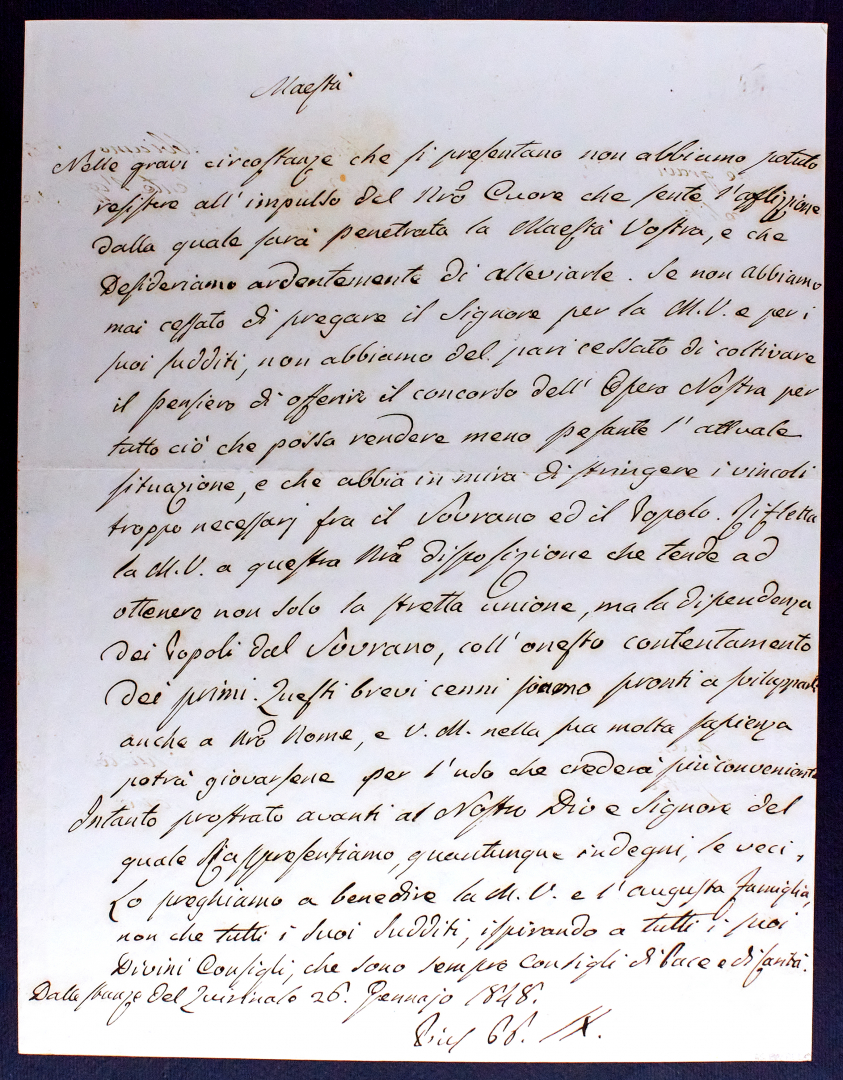 Maestà
Nelle gravi circostanze che si presentano non abbiamo potuto
resistere all'impulso del Nrõ Cuore che sente l'afflizione
dalla quale sarà penetrata la Maestà Vostra, e che
Desideriamo ardentemente di alleviarle. Se non abbiamo
mai cessato di pregare il Signore per la M.V. e per i
suoi sudditi, non abbiamo del pari cessato di coltivare
il pensiero di offerirle il concorso dell'Opera Nostra per
tutto ciò che possa rendere meno pesante l'attuale
situazione, e che abbia in mira di stringere i vincoli
troppo necessarj fra il Sovrano ed il Popolo. Rifletta
la M.V. a questa Nrã disposizione che tende ad
ottenere non solo la stretta unione, ma la dipendenza
dei Popoli dal Sovrano, coll'onesto contentamento
dei primi. Questi brevi cenni siamo pronti a sviluppare
anche a Nrõ Nome, e V.M. nella sua molta sapienza
potrà giovarsene per l'uso che crederà più conveniente
Intanto prostrato avanti al Nostro Dio e Signore del
quale Rappresentiamo, quantunque indegni, le veci,
Lo preghiamo a benedire la M.V. e l'augusta famiglia,
non che tutti i Suoi Sudditi, ispirando a tutti i suoi
Divini Consigli, che sono sempre Consigli di Pace e di santà.
Dalle stanze del Quirinale 26. Gennajo 1848.
Pius PP. IX.